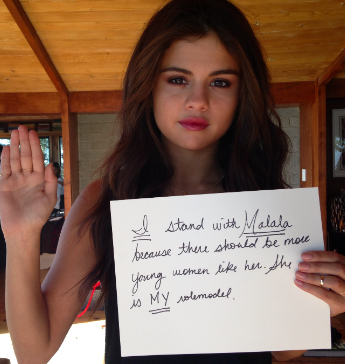 I stand with Malala
because there should be more
young women like her. She
is MY rolemodel.